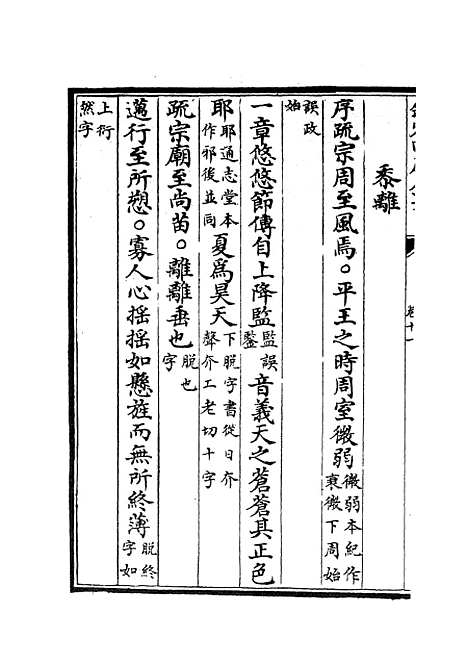 黍離
序疏宗周至風焉○平王之時周室微弱微弱本紀作衰微下周始
誤政始
一章悠悠節傳自上降監監誤鑒音義天之蒼蒼其正色
耶耶通志堂本作邪後並同夏爲昊天下脱字書從日夰聲夰工老切十字
疏宗廟至尚苗○離離垂也脱也字
邁行至所愬○寡人心揺揺如懸旌而無所終薄脱終字如
上衍然字
卷十一